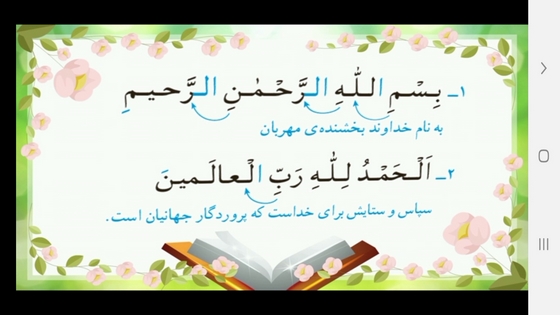 ۱ـ بِسْمِ اللّٰهِ الرَّحْمٰنِ الرَّحیمِ
به نام خداوند بخشنده‌ی مهربان
۲ـ اَلْحَمْدُ لِلّٰهِ رَبِّ الْعالَمینَ
سپاس و ستایش برای خداست که پروردگار جهانیان است.